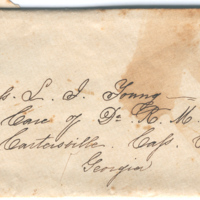 s. L. J. Young
Care of Dr. R. M.
Cartersville, Cass C
Georgia